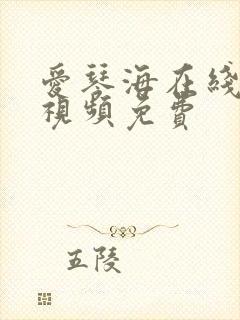 愛琴海在綫
視頻免費
五陵